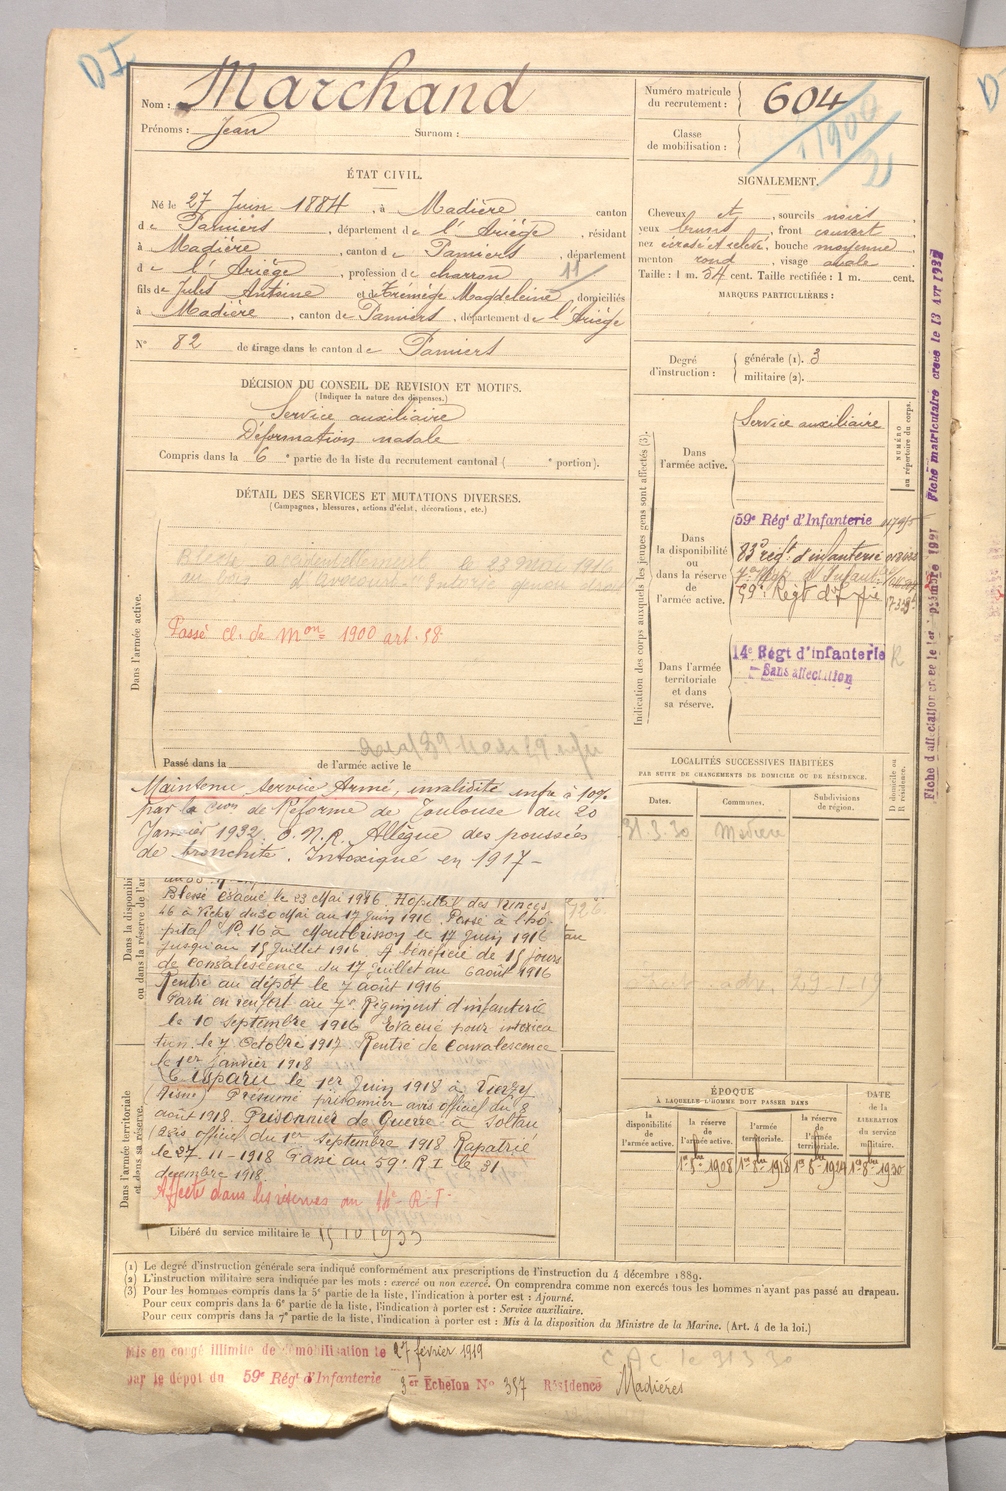 DI
Nom : Marchand
Prénoms : Jean Surnom :
Numéro matricule du recrutement : 604
Classe de mobilisation : 1900
ÉTAT CIVIL.
Né le 27 Juin 1884, à Madière canton
de Pamiers, département de l'Ariège, résidant
à Madière, canton de Pamiers, département
de l'Ariège, profession de charron 11
fils de Jules Antoine et de Trémège Magdeleine, domiciliés
à Madière, canton de Pamiers, département de l'Ariège
N° 82 de tirage dans le canton de Pamiers
SIGNALEMENT.
Cheveux et, sourcils noirs,
yeux bruns, front couvert,
nez écrasé et relevé, bouche moyenne,
menton rond, visage ovale
Taille : 1 m. 54 cent. Taille rectifiée : 1 m. cent.
MARQUES PARTICULIÈRES :
Degré d'instruction : générale (1). 3
militaire (2).
DÉCISION DU CONSEIL DE REVISION ET MOTIFS.
(Indiquer la nature des dispenses.)
Service auxiliaire
Déformation nasale
Compris dans la 6e partie de la liste du recrutement cantonal ( e portion).
DÉTAIL DES SERVICES ET MUTATIONS DIVERSES.
(Campagnes, blessures, actions d'éclat, décorations, etc.)
Dans l'armée active.
Blessé accidentellement le 23 mai 1916
au bois d'Avocourt
Passé cl. de Mon 1900 art. 58
Passé dans la de l'armée active le
Maintenu Service Armé, invalidité infre à 10%
par la Cion de Réforme de Toulouse du 20
Janvier 1932. O.N.R. Allègue des poussées
de bronchite. Intoxiqué en 1917 -
Dans la disponibi
ou dans la réserve de l'ar
Blessé Evacué le 23 Mai 1916. Hôpital des
46 à Vichy du 30 Mai au 17 Juin 1916. Passé à l'hô
pital N° 16 à Montbrison le 17 Juin 1916
jusqu'au 15 Juillet 1916. A bénéficié de 15 jours
de convalescence du 17 juillet au 6 août 1916
Rentré au dépôt le 7 août 1916
Parti en renfort au 7e Régiment d'infanterie
le 10 Septembre 1916 Evacué pour intoxica
tion le 7 Octobre 1917 Rentré de Convalescence
le 1er Janvier 1918
Disparu le 1er Juin 1918 à Vierzy
(Aisne) Présumé prisonnier avis officiel du 8
août 1918. Prisonnier de Guerre à Soltau
(avis officiel du 1er Septembre 1918 Rapatrié
le 27-11-1918 Passé au 59e R I le 31
décembre 1918.
Affecté dans les réserves au 14e R-I-
Dans l'armée territoriale
et dans sa réserve.
Libéré du service militaire le 15 10 1933
Indication des corps auxquels les jeunes gens sont affectés (3).
NUMÉRO au répertoire du corps.
Dans l'armée active.
Service auxiliaire
Dans la disponibilité ou dans la réserve de l'armée active.
59e Régt d'Infanterie
83e régt d'infanterie
59e Régt d'Infie
Dans l'armée territoriale et dans sa réserve.
14e Régt d'infanterie
Sans affectation
Fiche d'affectation créée le 1er Septembre 1921 Fiche matriculaire créée le 13 Avr 1932
LOCALITÉS SUCCESSIVES HABITÉES
PAR SUITE DE CHANGEMENTS DE DOMICILE OU DE RÉSIDENCE.
Dates. Communes. Subdivisions de région. D domicile ou R résidence.
31.3.30 Madière
ÉPOQUE
À LAQUELLE L'HOMME DOIT PASSER DANS
DATE de la LIBÉRATION du service militaire.
la disponibilité de l'armée active. la réserve de l'armée active. l'armée territoriale. la réserve de l'armée territoriale.
1er 8bre 1908 1er 8bre 1918 1er 8bre 1924 1er 8bre 1930
(1) Le degré d'instruction générale sera indiqué conformément aux prescriptions de l'instruction du 4 décembre 1889.
(2) L'instruction militaire sera indiquée par les mots : exercé ou non exercé. On comprendra comme non exercés tous les hommes n'ayant pas passé au drapeau.
(3) Pour les hommes compris dans la 5e partie de la liste, l'indication à porter est : Ajourné.
Pour ceux compris dans la 6e partie de la liste, l'indication à porter est : Service auxiliaire.
Pour ceux compris dans la 7e partie de la liste, l'indication à porter est : Mis à la disposition du Ministre de la Marine. (Art. 4 de la loi.)
Mis en congé illimité de démobilisation le 27 février 1919
par le dépôt du 59e Régt d'Infanterie 3er Echelon N° 357 Résidence Madières
CAC le 31 3 30